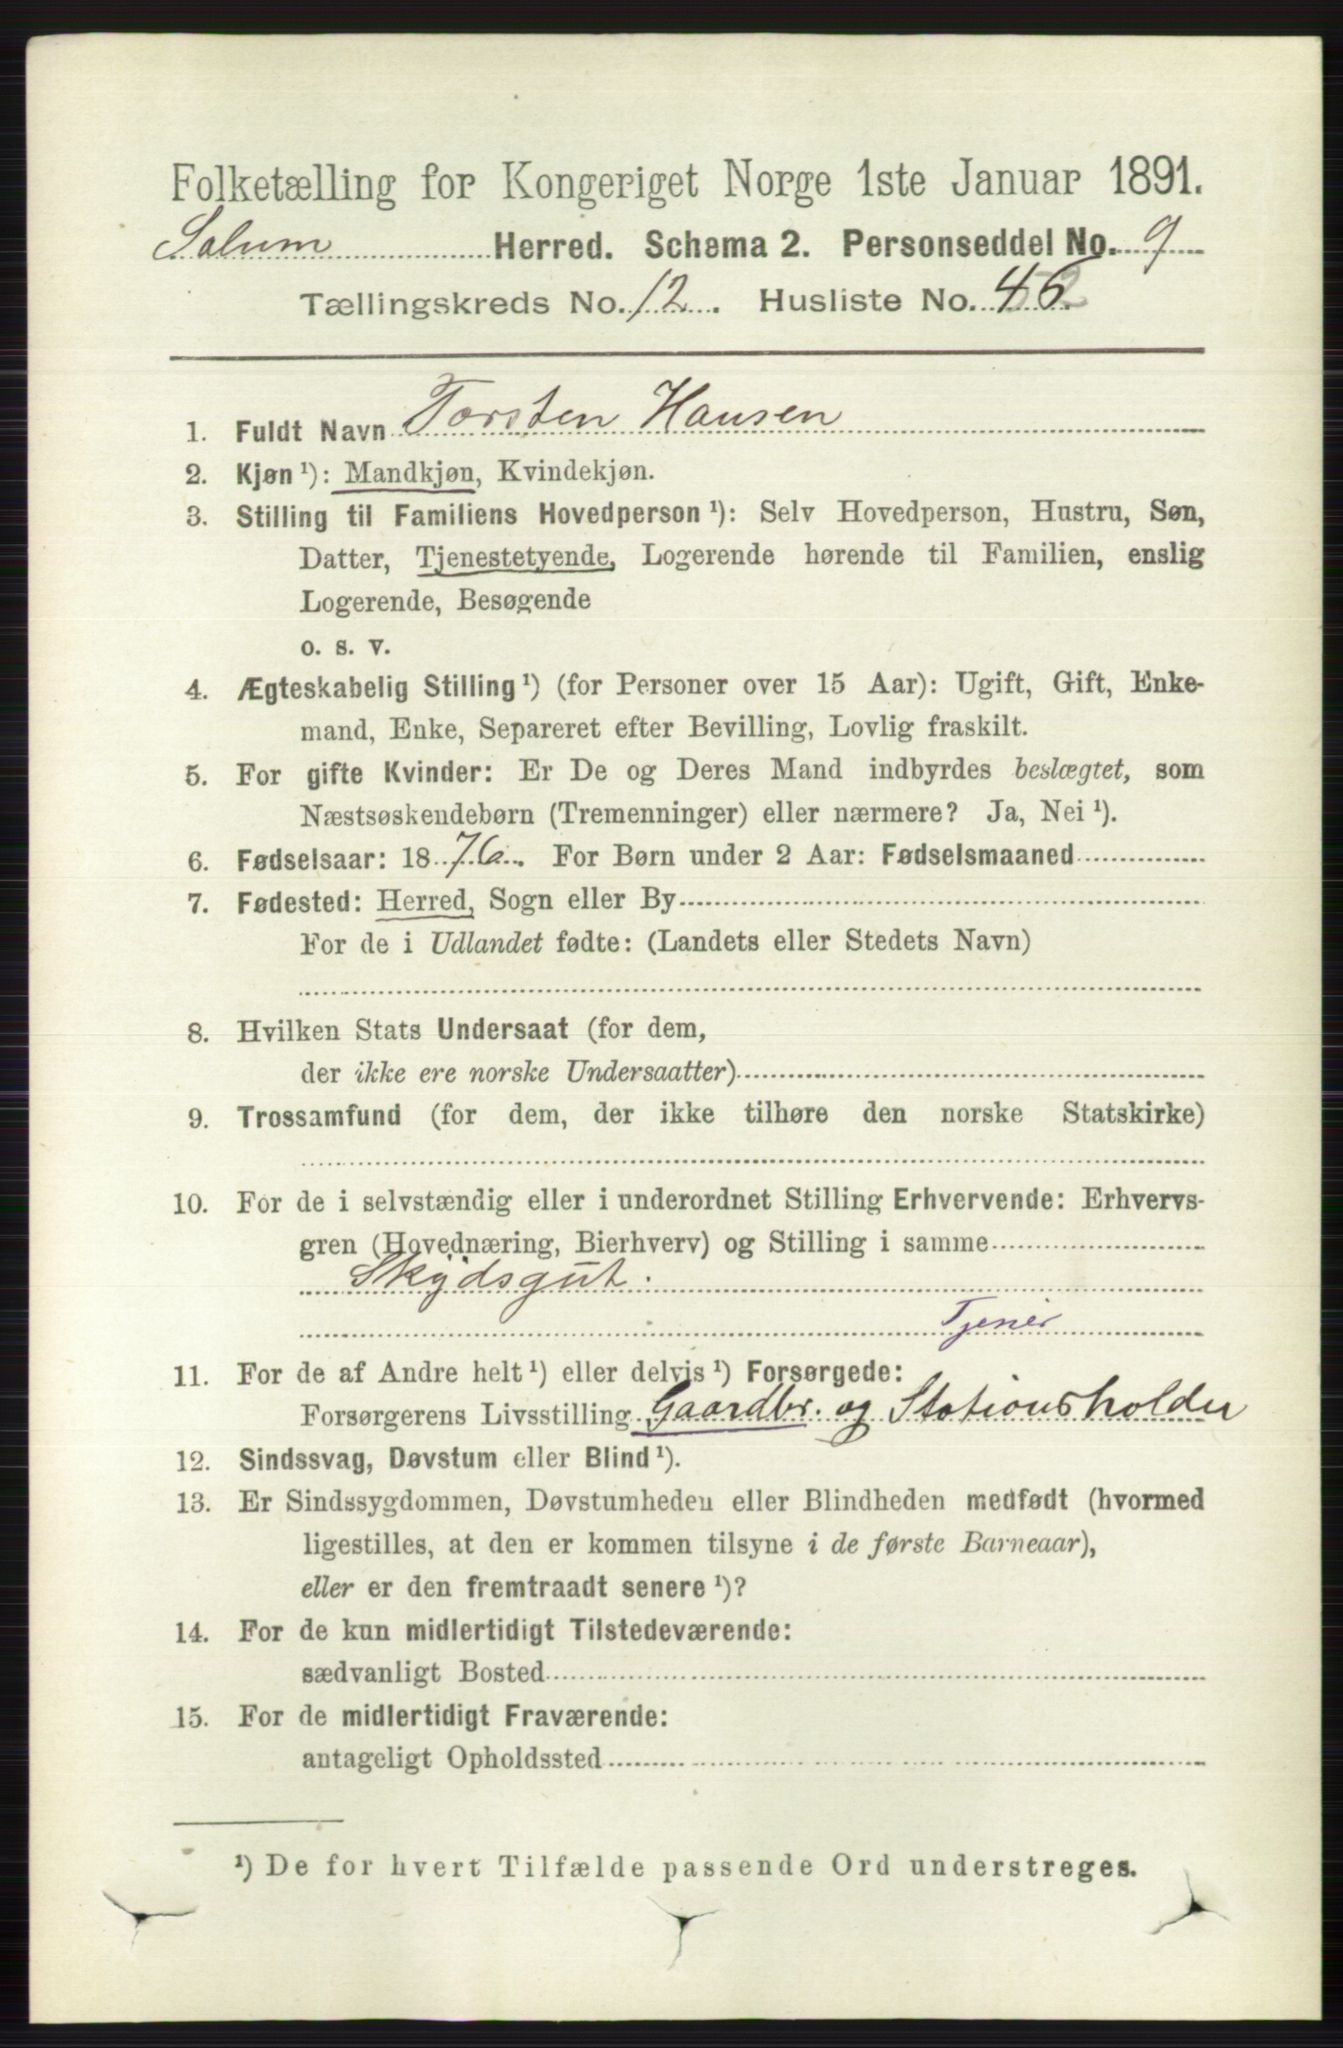 Folketælling for Kongeriget Norge 1ste Januar 1891.
Solum Herred. Schema 2. Personseddel No. 9
Tællingskreds No. 12. Husliste No. 46
1. Fuldt Navn Torsten Hansen
2. Kjøn¹): Mandkjøn, Kvindekjøn.
3. Stilling til Familiens Hovedperson¹): Selv Hovedperson, Hustru, Søn,
Datter, Tjenestetyende, Logerende hørende til Familien, enslig
Logerende, Besøgende
o. s. v.
4. Ægteskabelig Stilling¹) (for Personer over 15 Aar): Ugift, Gift, Enke-
mand, Enke, Separeret efter Bevilling, Lovlig fraskilt.
5. For gifte Kvinder: Er De og Deres Mand indbyrdes beslægtet, som
Næstsøskendebørn (Tremenninger) eller nærmere? Ja, Nei¹).
6. Fødselsaar: 1876. For Børn under 2 Aar: Fødselsmaaned
7. Fødested: Herred, Sogn eller By
For de i Udlandet fødte: (Landets eller Stedets Navn)
8. Hvilken Stats Undersaat (for dem,
der ikke ere norske Undersaatter)
9. Trossamfund (for dem, der ikke tilhøre den norske Statskirke)
10. For de i selvstændig eller i underordnet Stilling Erhvervende: Erhvervs-
gren (Hovednæring, Bierhverv) og Stilling i samme
Skydsgut.
Tjener
11. For de af Andre helt¹) eller delvis¹) Forsørgede:
Forsørgerens Livsstilling Gaardbr. og Stationsholder
12. Sindssvag, Døvstum eller Blind¹).
13. Er Sindssygdommen, Døvstumheden eller Blindheden medfødt (hvormed
ligestilles, at den er kommen tilsyne i de første Barneaar),
eller er den fremtraadt senere¹)?
14. For de kun midlertidigt Tilstedeværende:
sædvanligt Bosted
15. For de midlertidigt Fraværende:
antageligt Opholdssted
¹) De for hvert Tilfælde passende Ord understreges.